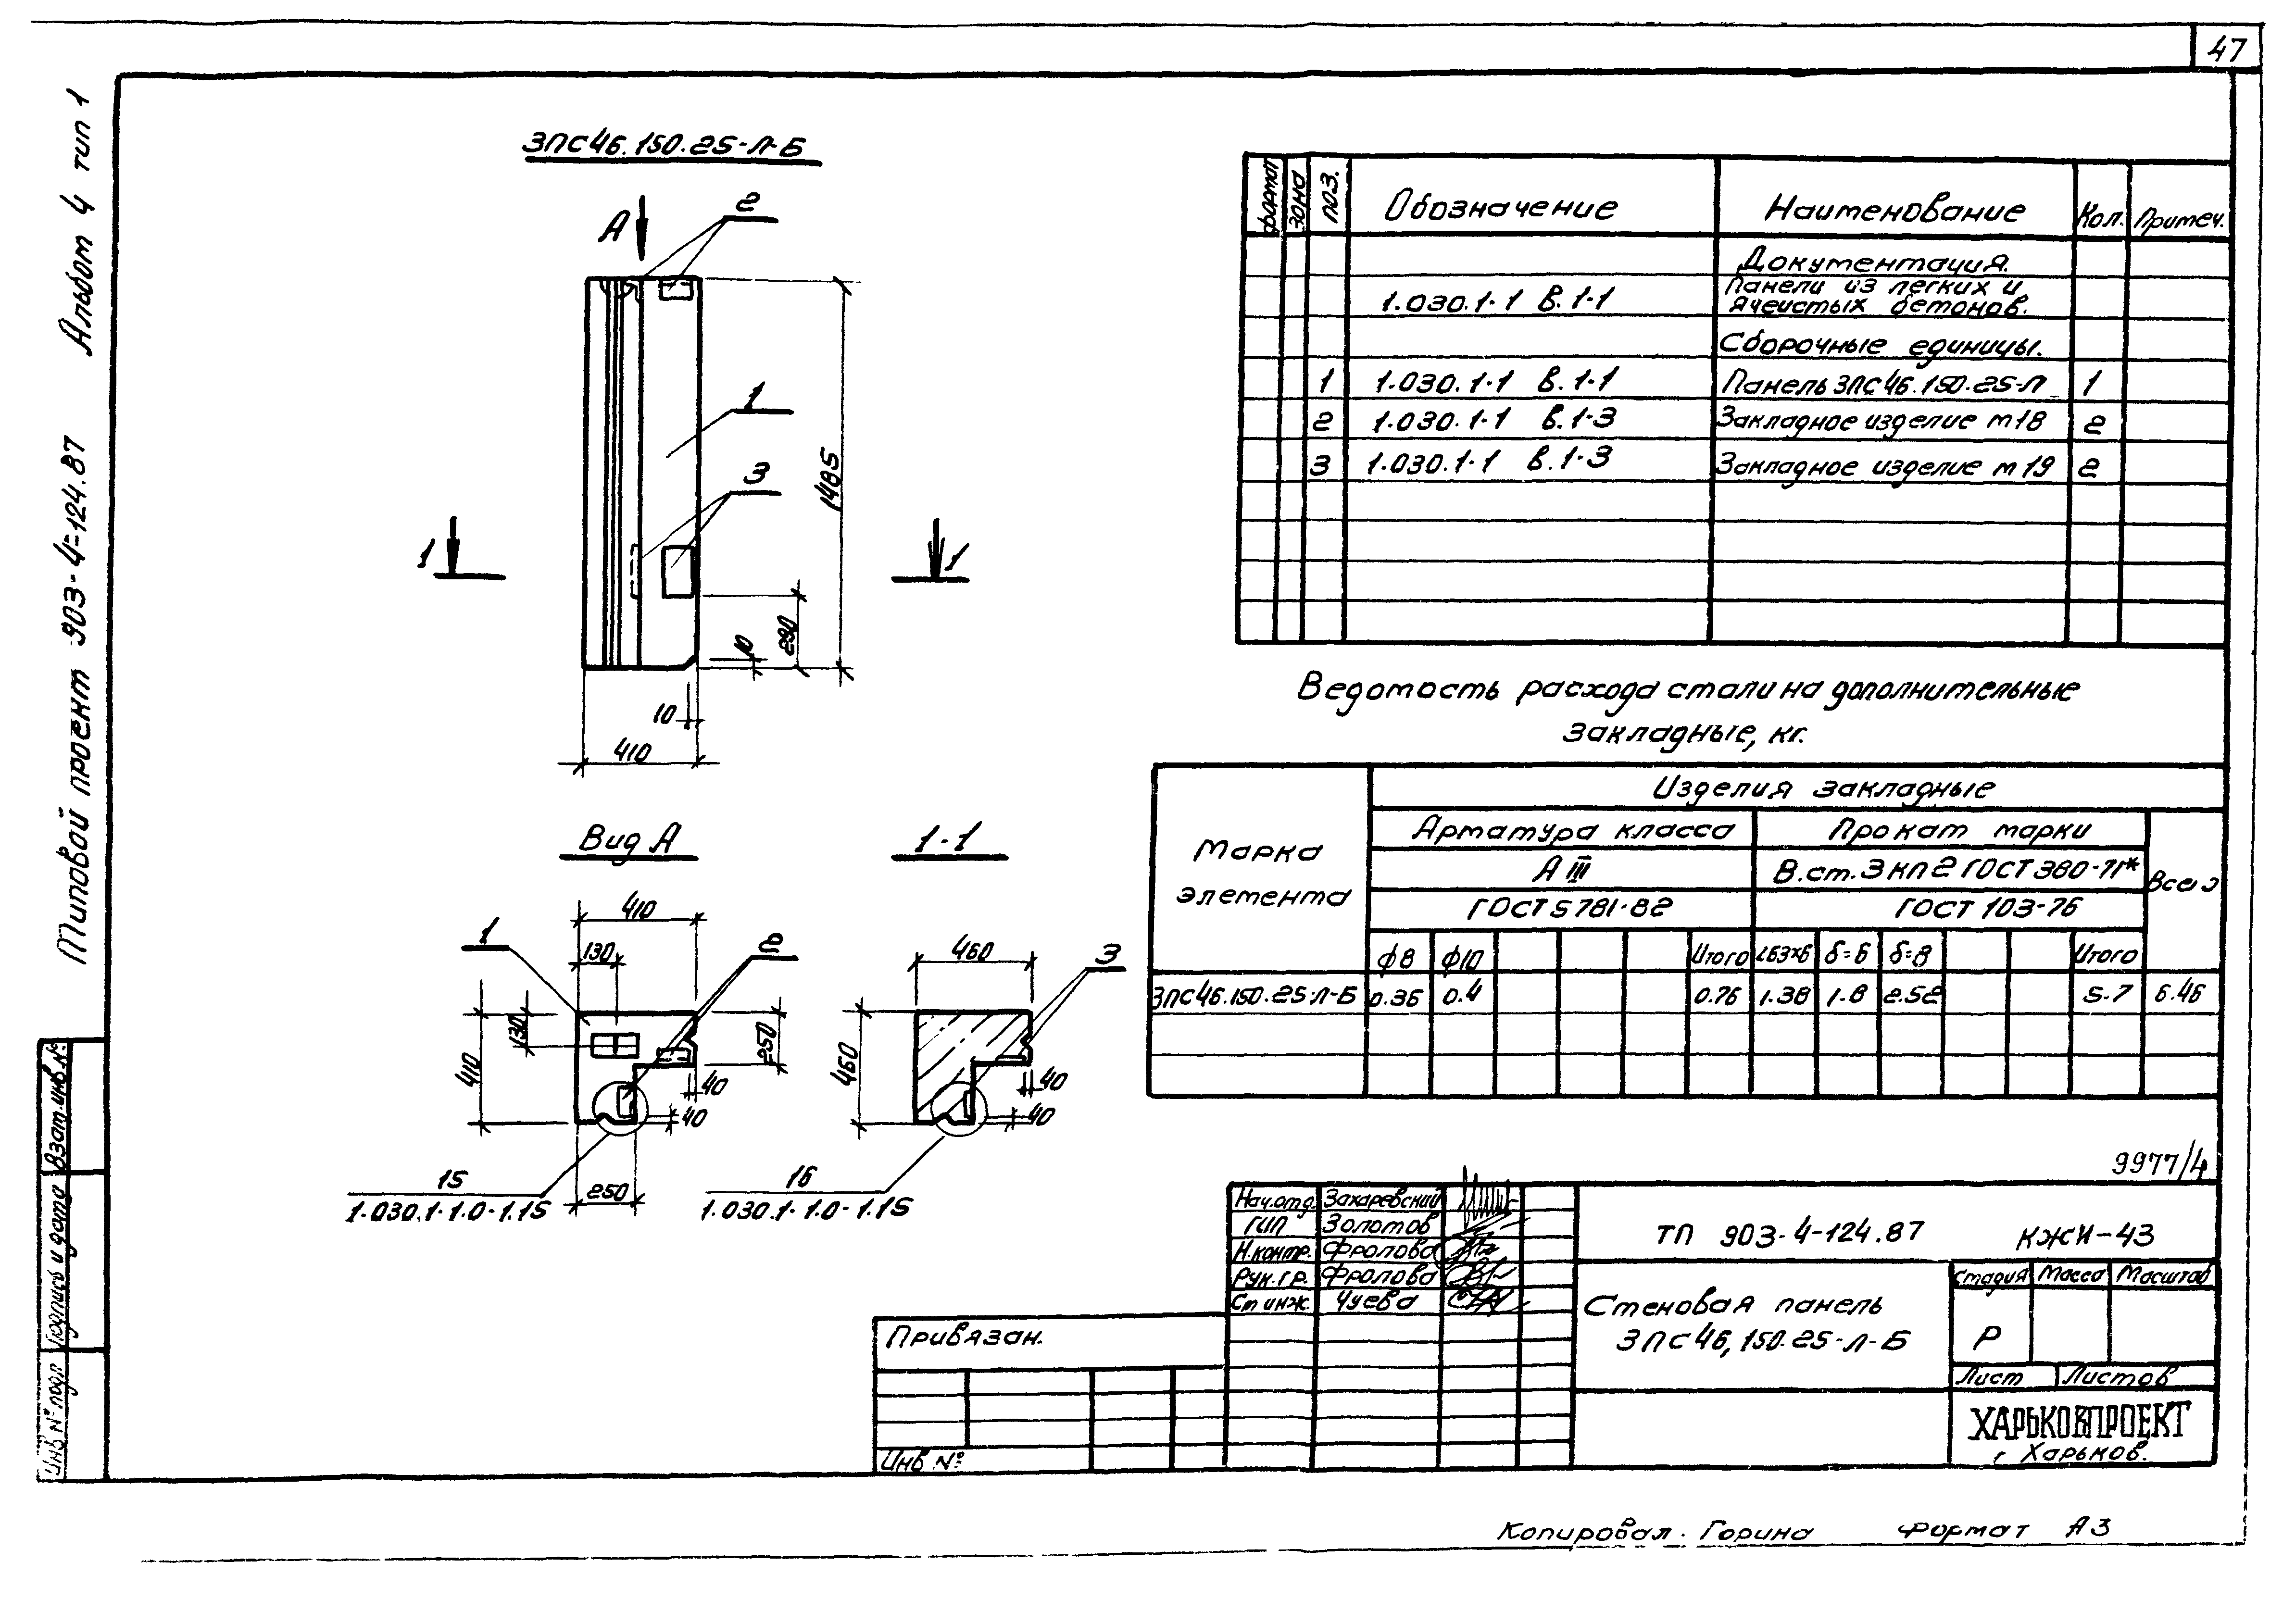 47
Альбом 4 тип 1
Типовой проект 903-4-124.87
3ПС46.150.25-Л-Б
А
2
1
3
1485
1
1
10
290
10
410
Вид А
1-1
410
130
1
2
130
410
250
40
40
250
15
1.030.1-1.0-1.15
460
3
460
40
40
16
1.030.1-1.0-1.15
формат зона поз. Обозначение Наименование Кол. Примеч.
Документация.
1.030.1-1 в.1-1 Панели из легких и
ячеистых бетонов.
Сборочные единицы.
1 1.030.1-1 в.1-1 Панель 3ПС46.150.25-Л 1
2 1.030.1-1 в.1-3 Закладное изделие м18 2
3 1.030.1-1 в.1-3 Закладное изделие м19 2
Ведомость расхода стали на дополнительные
закладные, кг.
Марка
элемента
Изделия закладные
Арматура класса Прокат марки
А III В.ст.3кп2 ГОСТ 380-71*
Всего
ГОСТ 5781-82 ГОСТ 103-76
ф8 ф10 Итого L63х6 δ=6 δ=8 Итого
3ПС46.150.25-Л-Б 0.36 0.4 0.76 1.38 1.8 2.52 5.7 6.46
9977/4
Нач.отд. Захаревский
ГИП Золотов
Н.контр. Фролова
Рук.гр. Фролова
Ст инж. Чуева
ТП 903-4-124.87 КЖИ-43
Стеновая панель
3ПС46,150.25-Л-Б
Стадия Масса Масштаб
Р
Лист Листов
ХАРЬКОВПРОЕКТ
г. Харьков.
Привязан.
Инв №
Взам.инв.№
Подпись и дата
Инв № подл
Копировал. Горина Формат А3